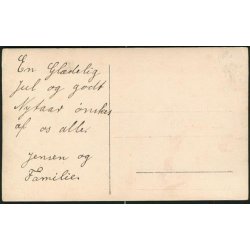 En Glædelig
Jul og godt
Nytaar ønskes
af os alle.
Jensen og
Familie.